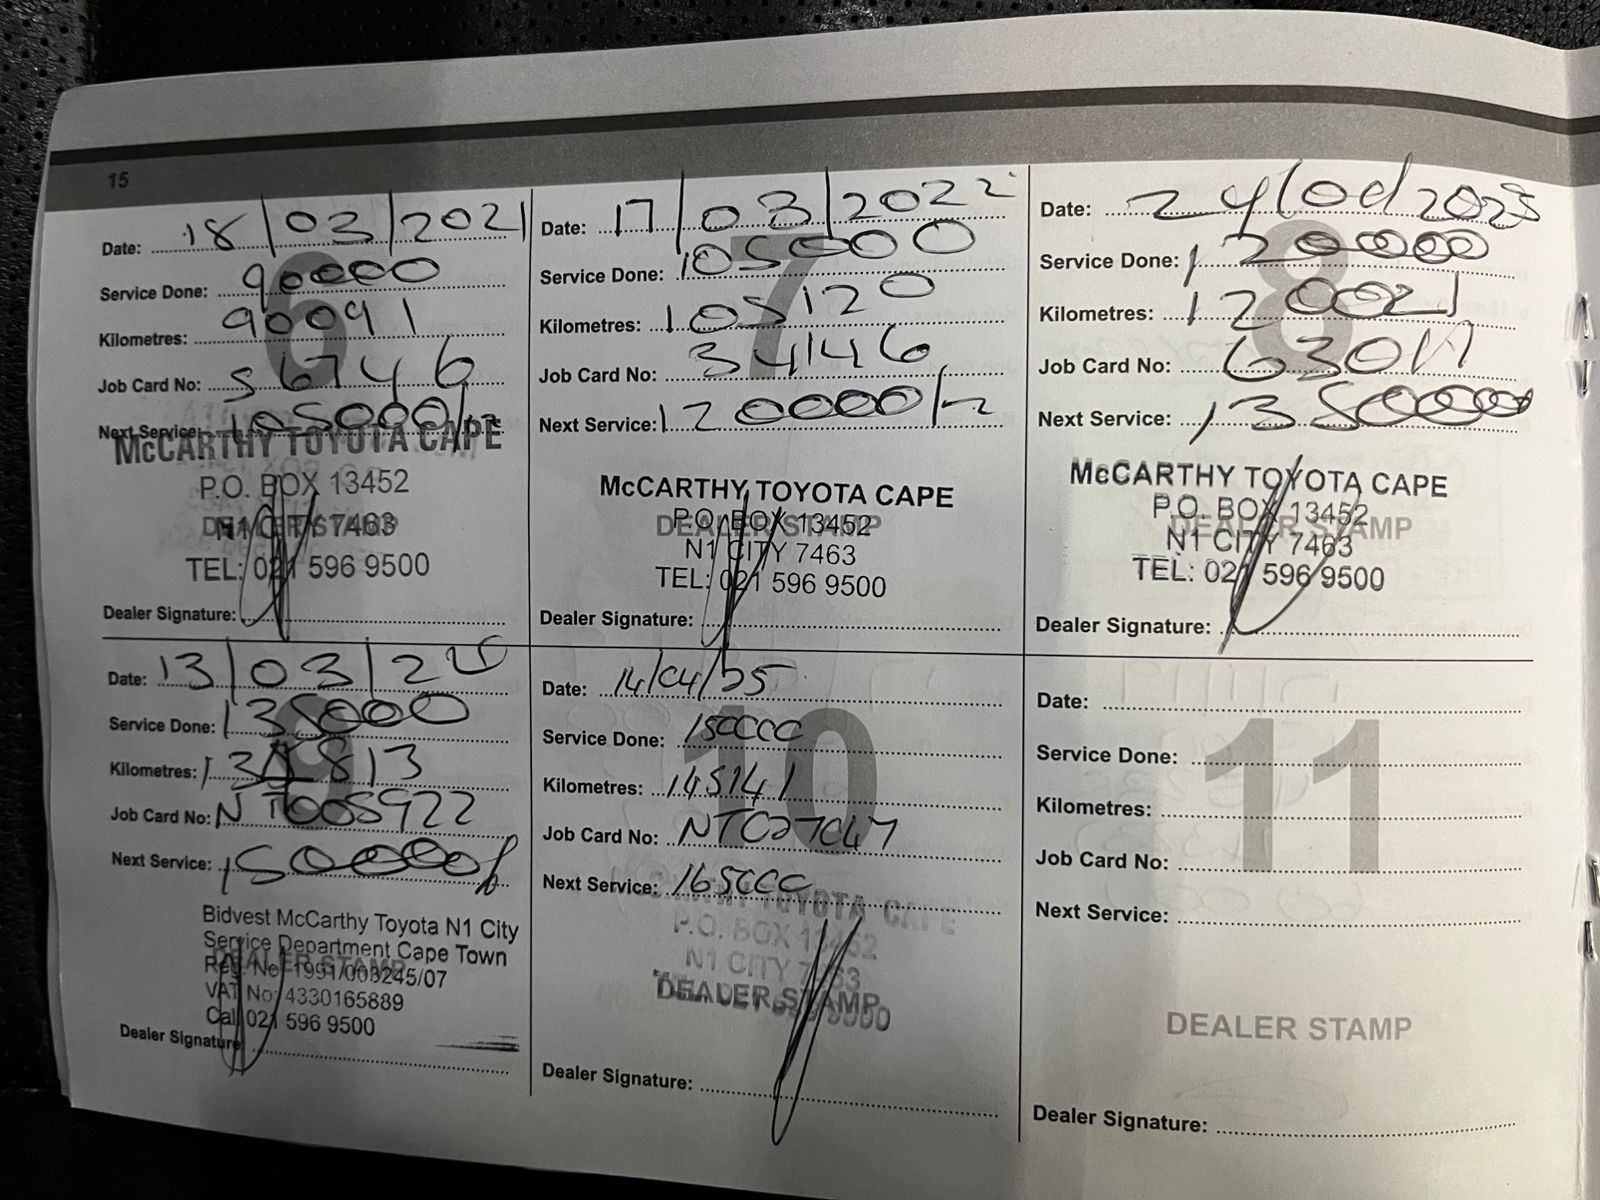 15
Date: 18/03/2021
Service Done: 90000
Kilometres: 90091
Job Card No: 56746
Next Service: 105000/12
McCARTHY TOYOTA CAPE
P.O. BOX 13452
DEALER STAMP
N1 CITY 7463
TEL: 021 596 9500
Dealer Signature:
6
Date: 17/03/2022
Service Done: 105000
Kilometres: 105120
Job Card No: 34146
Next Service: 120000/12
McCARTHY TOYOTA CAPE
P.O. BOX 13452
DEALER STAMP
N1 CITY 7463
TEL: 021 596 9500
Dealer Signature:
7
Date:
Service Done: 120000
Kilometres: 120021
Job Card No:
Next Service:
McCARTHY TOYOTA CAPE
P.O. BOX 13452
DEALER STAMP
N1 CITY 7463
TEL: 021 596 9500
Dealer Signature:
8
Date:
Service Done: 135000
Kilometres:
Job Card No: NT005922
Next Service:
Bidvest McCarthy Toyota N1 City
Service Department Cape Town
DEALER STAMP
Reg No: 1991/003245/07
VAT No: 4330165889
Call 021 596 9500
Dealer Signature:
9
Date: 14/04/25
Service Done: 150000
Kilometres: 145141
Job Card No: NT027047
Next Service: 165000
McCARTHY TOYOTA CAPE
P.O. BOX 13452
N1 CITY 7463
DEALER STAMP
Dealer Signature:
10
Date:
Service Done:
Kilometres:
Job Card No:
Next Service:
11
DEALER STAMP
Dealer Signature: